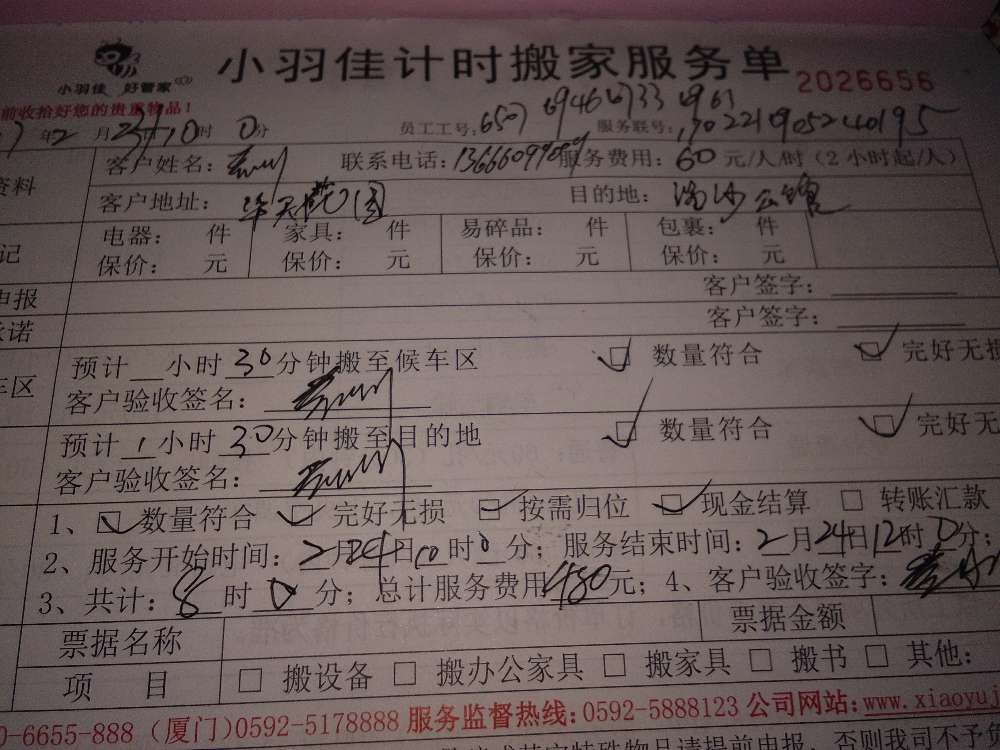 小羽佳计时搬家服务单 2026656
小羽佳 好管家
前收拾好您的贵重物品!
年2月24日10时0分 员工工号: 6507 6946 6733 6963 服务联号:
资料 客户姓名: 联系电话: 服务费用: 60元/人/时(2小时起/人)
客户地址: 华天花园 目的地:
记 电器: 件 家具: 件 易碎品: 件 包裹: 件
保价: 元 保价: 元 保价: 元 保价: 元
申报 客户签字:
承诺 客户签字:
车区 预计 小时 30 分钟搬至候车区 数量符合 完好无损
客户验收签名:
预计 1 小时 30 分钟搬至目的地 数量符合 完好无
客户验收签名:
1、 数量符合 完好无损 按需归位 现金结算 转账汇款
2、服务开始时间: 2月24日10时0分; 服务结束时间: 2月24日12时0分;
3、共计: 8时0分; 总计服务费用480元; 4、客户验收签字:
票据名称 票据金额
项 目 搬设备 搬办公家具 搬家具 搬书 其他:
0-6655-888 (厦门)0592-5178888 服务监督热线:0592-5888123 公司网站:www.xiaoyuj
物品请提前申报,否则我司不予